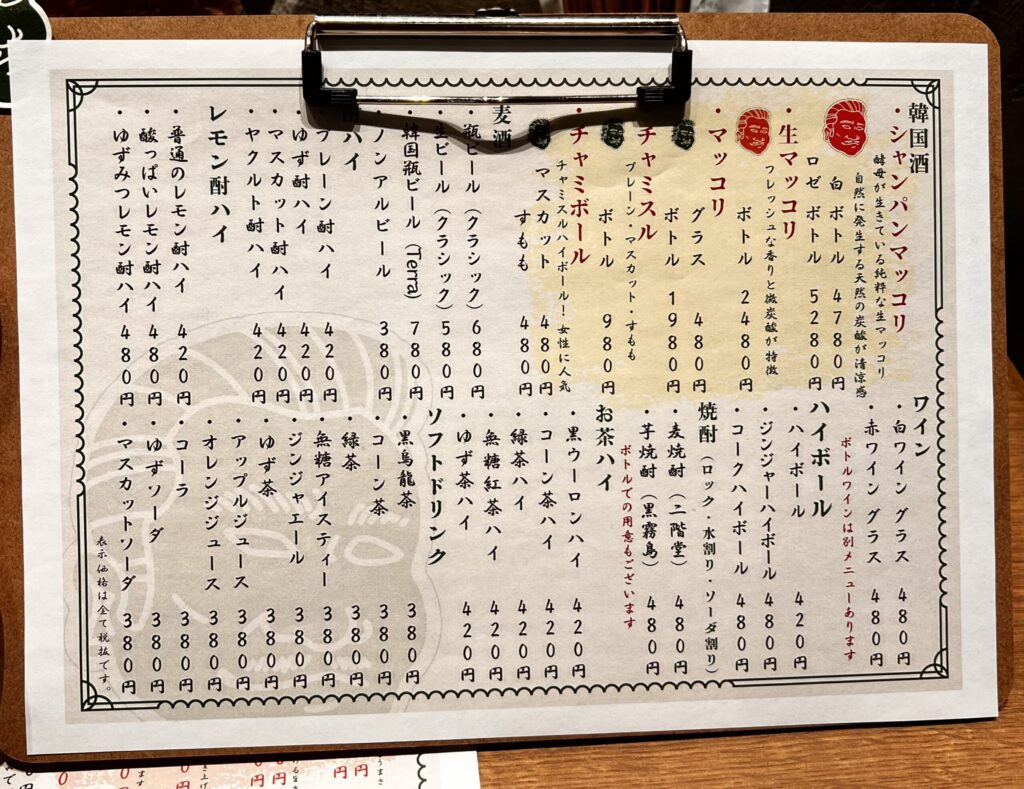 韓国酒
・シャンパンマッコリ
酵母が生きている純粋な生マッコリ
自然に発生する天然の炭酸が清涼感
白 ボトル 4780円
ロゼ ボトル 5280円
・生マッコリ
フレッシュな香りと微炭酸が特徴
ボトル 2480円
・マッコリ
グラス 480円
ボトル 1980円
・チャミスル
プレーン・マスカット・すもも
ボトル 980円
・チャミボール
チャミスルハイボール!女性に人気
マスカット 480円
すもも 480円
麦酒
・瓶ビール(クラシック) 680円
・生ビール(クラシック) 580円
・韓国瓶ビール(Terra) 780円
ノンアルビール 380円
酎ハイ
プレーン酎ハイ 420円
・ゆず酎ハイ 420円
・マスカット酎ハイ 420円
・ヤクルト酎ハイ 420円
レモン酎ハイ
・普通のレモン酎ハイ 420円
・酸っぱいレモン酎ハイ 480円
・ゆずみつレモン酎ハイ 480円
ワイン
・白ワイン グラス 480円
・赤ワイン グラス 480円
ボトルワインは別メニューあります
ハイボール
・ハイボール 420円
・ジンジャーハイボール 480円
・コークハイボール 480円
焼酎(ロック・水割り・ソーダ割り)
・麦焼酎(二階堂) 480円
・芋焼酎(黒霧島) 480円
ボトルでの用意もございます
お茶ハイ
・黒ウーロンハイ 420円
・コーン茶ハイ 420円
・緑茶ハイ 420円
・無糖紅茶ハイ 420円
・ゆず茶ハイ 420円
ソフトドリンク
・黒烏龍茶 380円
・コーン茶 380円
・緑茶 380円
・無糖アイスティー 380円
・ジンジャエール 380円
・ゆず茶 380円
・アップルジュース 380円
・オレンジジュース 380円
・コーラ 380円
・ゆずソーダ 380円
・マスカットソーダ 380円
表示価格は全て税抜です。